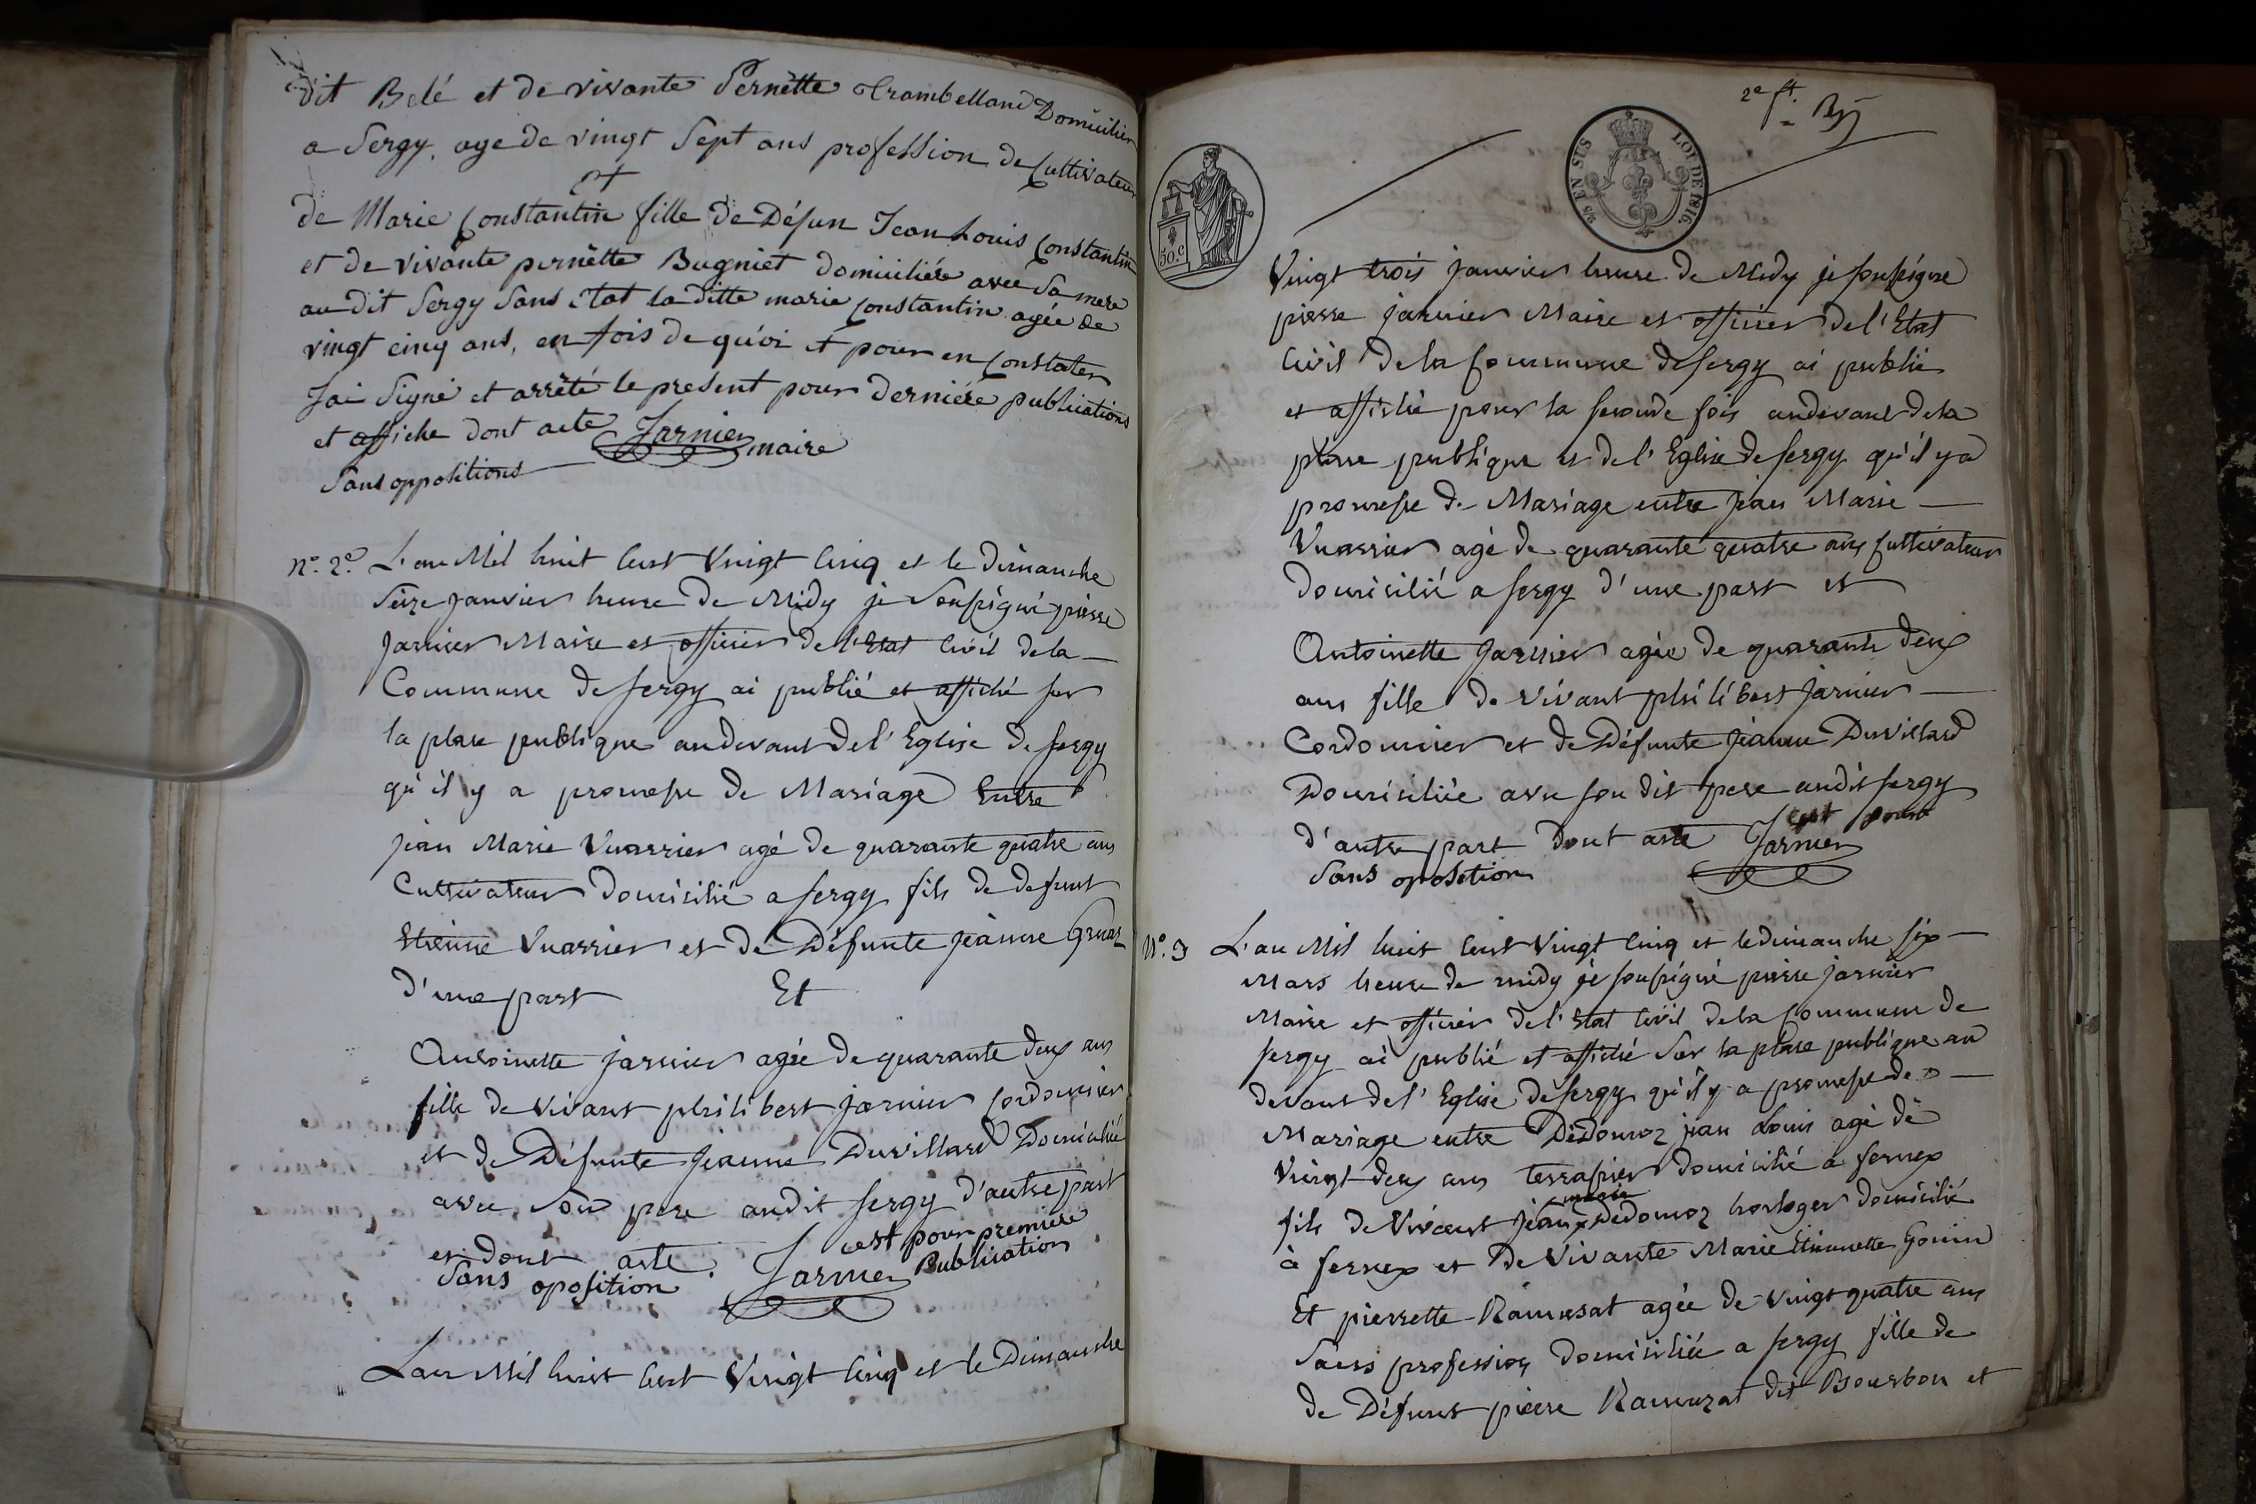 dit Belé et de vivante Pernette Crambelland Domicilier
a Sergy, age de vingt Sept ans profession de Cultivateur
et
de Marie Constantin fille de Défun Jean Louis Constantin
et de vivante pernette Bugniet domiciliére avec Sa mere
au dit Sergy Sans etat la ditte marie Constantin agée de
vingt cinq ans, en fois de quoi et pour en Constater
Jai Signé et arrêté le present pour derniére publications
et affiche dont acte Jarnier maire
Sans oppositions
n.º 2.º L'an Mil huit Cent Vingt Cinq et le Dimanche
Seize Janvier heure de Midy je Soussigné pierre
Jarnier Maire et officier de l'Etat Civil de la
Commune de Sergy ai publié et affiché sur
la place publique au devant de l'Eglise de Sergy
qu'il y a promesse de Mariage Entre
jean Marie Vuarrier agé de quarante quatre ans
Cultivateur Domicilié a Sergy fils de defunt
Etienne Vuarrier et de Défunte jeanne Gruaz
d'une part Et
Antoinette jarnier agée de quarante deux ans
fille de vivant philibert jarnier Cordonnier
et de Défunte jeanne Duvillard Domiciliée
avec Son pere audit Sergy d'autre part
et dont acte. Jarnier cest pour premiere
Sans oposition Publication
Lan Mil huit Cent Vingt Cinq et le Dimanche
2e ft.
EN SUS
LOI DE 1816.
50.c
Vingt trois janvier heure de Midy je soussigné
pierre jarnier Maire et officier de l'Etat
Civil de la Commune de Sergy ai publié
et affiché pour la seconde fois au devant de la
place publique et de l'Eglise de Sergy qu'il y a
promesse de Mariage entre jean Marie
Vuarrier agé de quarante quatre ans Cultivateur
Domicilié a Sergy d'une part et
Antoinette Jarnier agée de quarante deux
ans fille de vivant philibert jarnier
Cordonnier et de Défunte jeanne Duvillard
Domiciliée avec son dit pere audit Sergy
d'autre part Dont acte Jarnier
Sans oposition
N.º 3 L'an Mil huit Cent Vingt Cinq et le dimanche six
Mars heure de midy je soussigné pierre jarnier
Maire et officier de l'Etat Civil de la Commune de
Sergy ai publié et affiché Sur la place publique au
devant de l'Eglise de Sergy qu'il y a promesse de
Mariage entre Dédomoz jean Louis agé de
Vuingt deux ans terrassier domicilié a fernex
marie
fils de Vivant jean Dedomoz horloger domicilié
à fernex et De Vivante Marie Etiennette Gonin
Et pierrette Ramusat agée de vingt quatre ans
Sans profession Domiciliée a Sergy fille de
de Défunt pierre Ramuzat dit Bourbon et